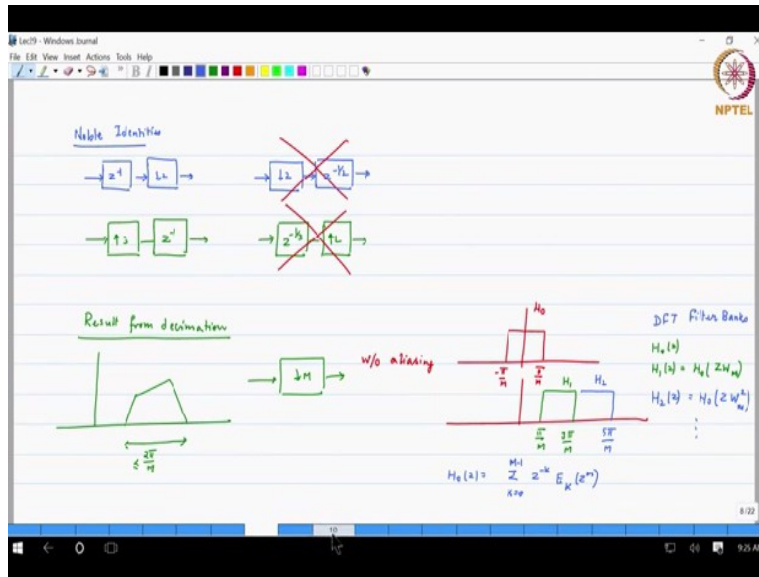 Lec19 - Windows Journal
File Edit View Insert Actions Tools Help
NPTEL
Noble Identities
z⁻¹ ↓2 ↓2 z^(-1/2)
↑3 z⁻¹ z^(-1/3) ↑L
Result from decimation
≤ 2π/M
↓M w/o aliasing
H₀
-π/M π/M
H₁ H₂
π/M 3π/M 5π/M
H₀(z) = Σ z⁻ᵏ E_K(zᴹ)
M-1
k=0
DFT Filter Banks
H₀(z)
H₁(z) = H₀(ZW_M)
H₂(z) = H₀(ZW²_M)
⋮
8/22
10
9:25 AM